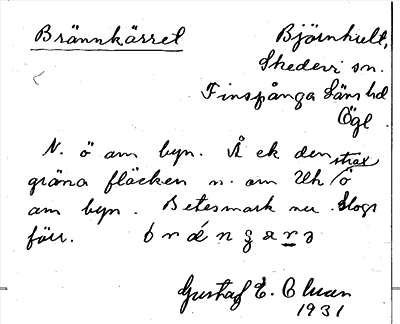 Brännkärret
Björnhult,
Skedevi sn.
Finspånga Läns hd
Ögl
N. ö om byn. Å ek den strax
gröna fläcken n. om Uh / ö
om byn. Betesmark nu. Slogs
förr.
Gustaf E.
1931